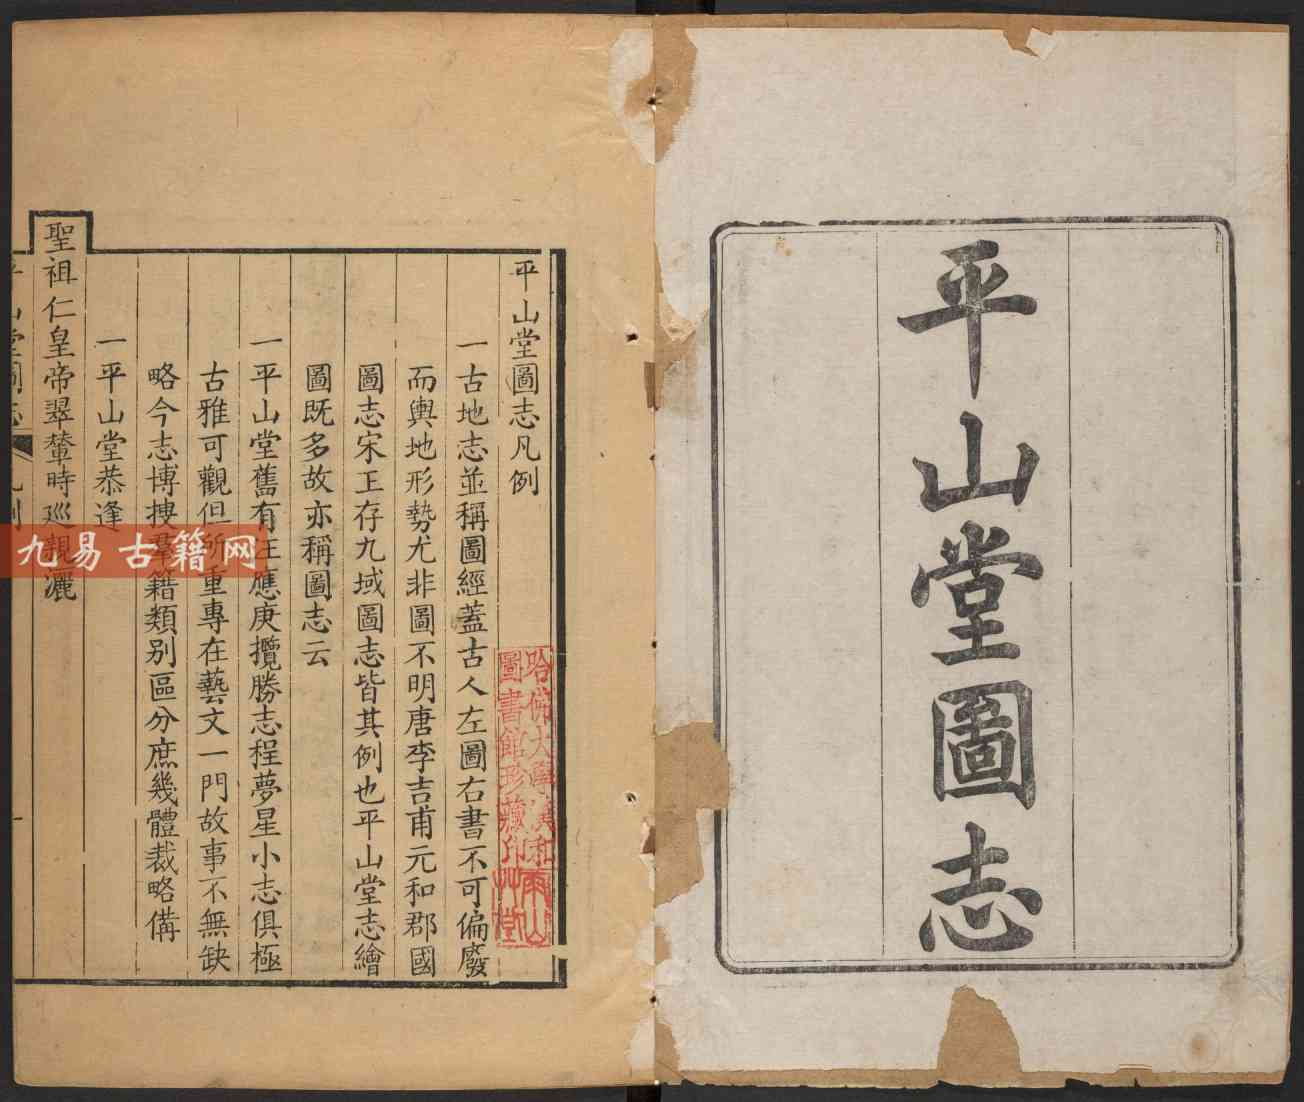 平山堂圖志
平山堂圖志凡例
一古地志並稱圖經蓋古人左圖右書不可偏廢
而輿地形勢尤非圖不明唐李吉甫元和郡國
圖志宋王存九域圖志皆其例也平山堂志繪
圖既多故亦稱圖志云
一平山堂舊有汪應庚攬勝志程夢星小志俱極
古雅可觀但所重專在藝文一門故事不無缺
略今志博搜羣籍類別區分庶幾體裁略備
一平山堂恭逢
聖祖仁皇帝翠輦時巡親灑
平山堂圖志
哈佛大學漢和
圖書館珍藏印
九易古籍网